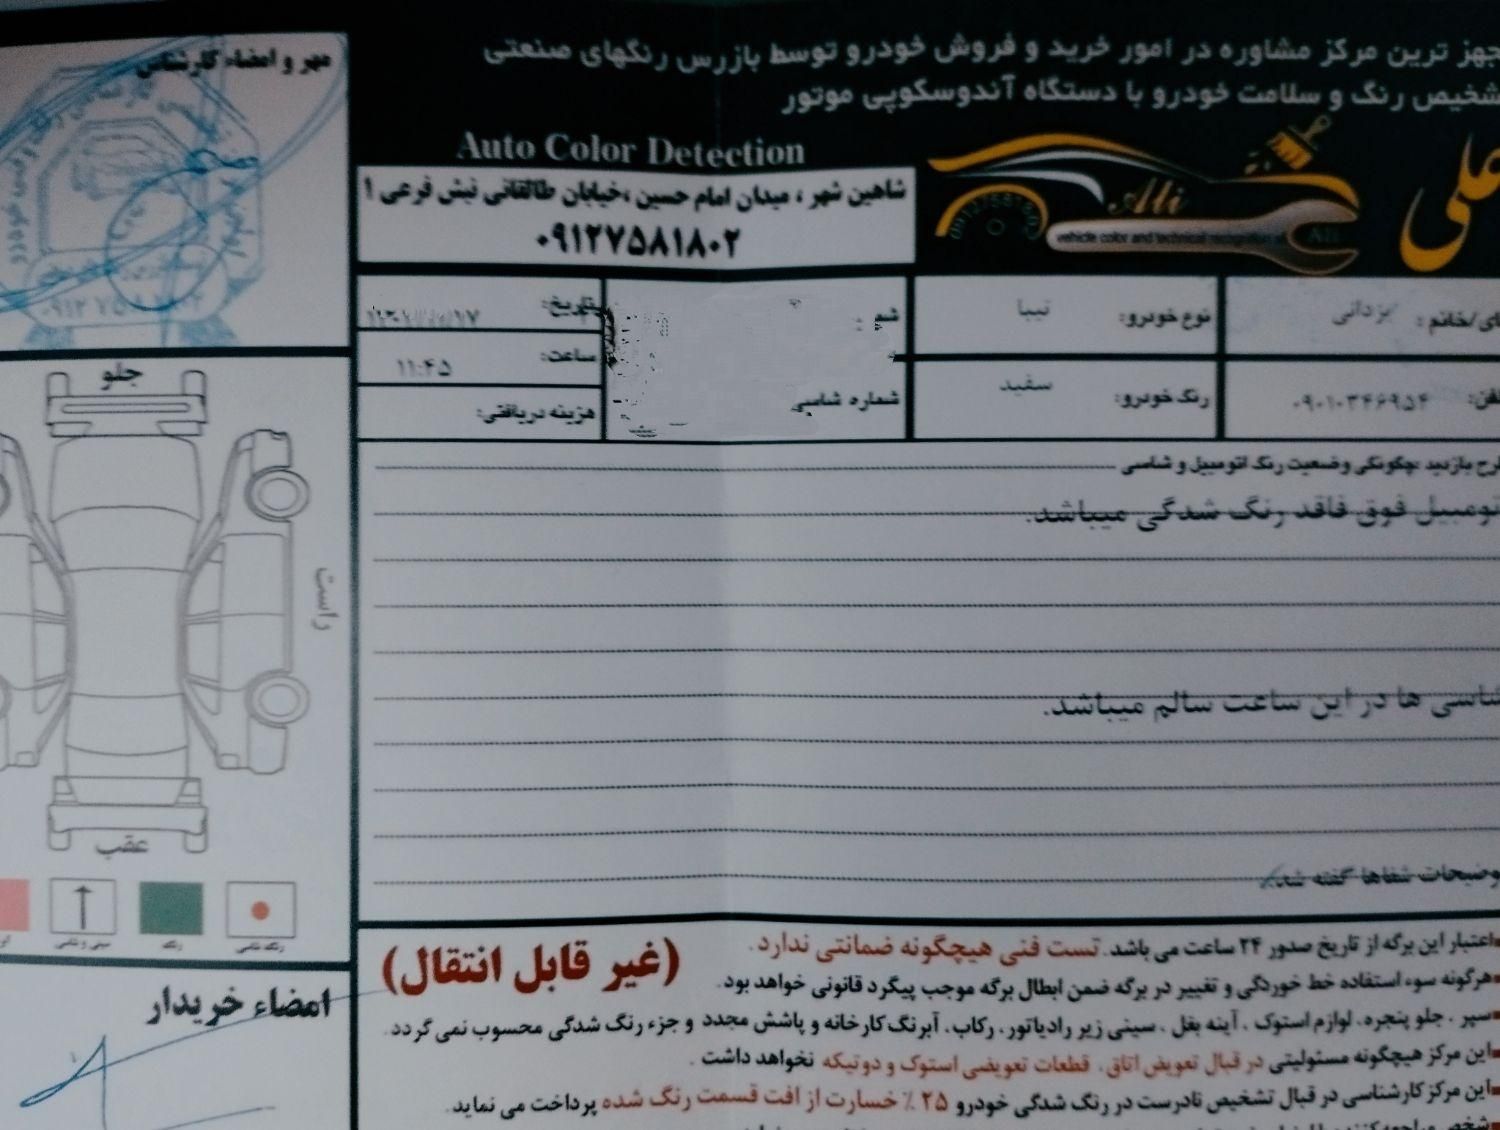 جهز ترین مرکز مشاوره در امور خرید و فروش خودرو توسط بازرس رنگهای صنعتی
شخیص رنگ و سلامت خودرو با دستگاه آندوسکوپی موتور
Auto Color Detection
علی
Ali
vehicle color and technical
شاهین شهر ، میدان امام حسین ،خیابان طالقانی نبش فرعی ۱
۰۹۱۲۷۵۸۱۸۰۲
مهر و امضاء کارشناس
ای/خانم : یزدانی
نوع خودرو: تیبا
تاریخ:
ساعت: ۱۱:۴۵
فن: ۰۹۰۱۰۳۴۶۹۵۴
رنگ خودرو: سفید
شماره شاسی
هزینه دریافتی:
رح بازدید :چگونگی وضعیت رنگ اتومبیل و شاسی
تومبیل فوق فاقد رنگ شدگی میباشد.
شاسی ها در این ساعت سالم میباشد.
وضیحات شفاها گفته شد.
جلو
راست
عقب
رنگ شاسی
رنگ
سینی و شاسی
امضاء خریدار
(غیر قابل انتقال)
اعتبار این برگه از تاریخ صدور ۲۴ ساعت می باشد. تست فنی هیچگونه ضمانتی ندارد.
هرگونه سوء استفاده خط خوردگی و تغییر در برگه ضمن ابطال برگه موجب پیگرد قانونی خواهد بود.
سپر . جلو پنجره . لوازم استوک . آینه بغل . سینی زیر رادیاتور . رکاب . آبرنگ کارخانه و پاشش مجدد و جزء رنگ شدگی محسوب نمی گردد.
این مرکز هیچگونه مسئولیتی در قبال تعویض اتاق . قطعات تعویضی استوک و دوتیکه نخواهد داشت .
این مرکز کارشناسی در قبال تشخیص نادرست در رنگ شدگی خودرو ۲۵ ٪ خسارت از افت قسمت رنگ شده پرداخت می نماید.